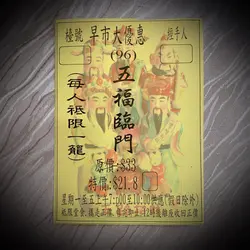 檯號 早市大優惠 經手人
(96)
五福臨門
(每人祗限一龍)
原價:$33
特價:$21.8
星期一至五上午7:00至10:00供應(假日除外)